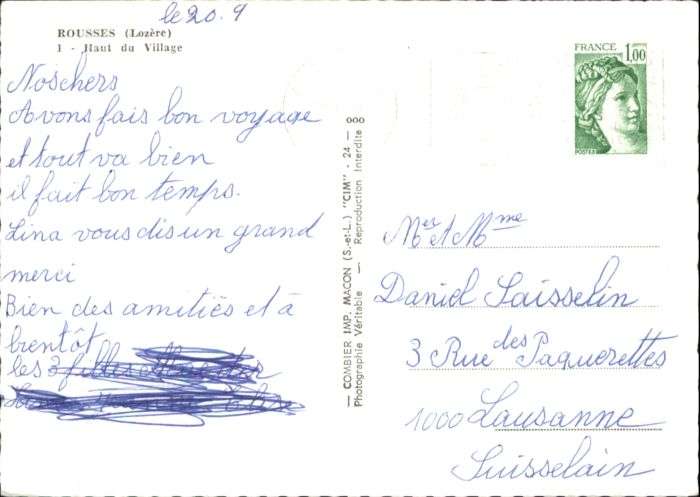 le 20.9
ROUSSES (Lozère)
1 - Haut du Village
Noschers
Avons fais bon voyage
et tout va bien
il fait bon temps.
Lina vous dis un grand
merci
Bien des amitiés et à
bientôt
les 3 filles
— COMBIER IMP. MACON (S.-et-L.) "CIM" - 24 — 000
Photographie Véritable — Reproduction Interdite
FRANCE
1,00
POSTES
Mer et Mme
Daniel Saisselin
3 Rue des Paquerettes
1000 Lausanne
Suisselain